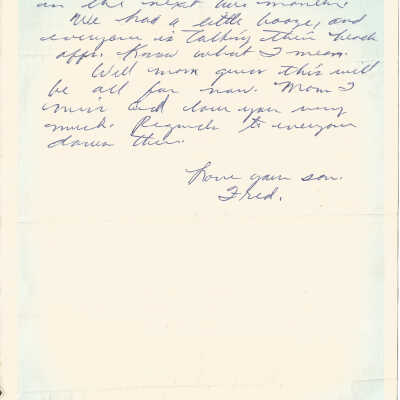 in the next two months.
We had a little booze, and
everyone is talking their heads
off. Know what I mean.
Well mom guess this will
be all for now. Mom I
miss and love you very
much. Regards to everyone
down there.
Love your son.
Fred.